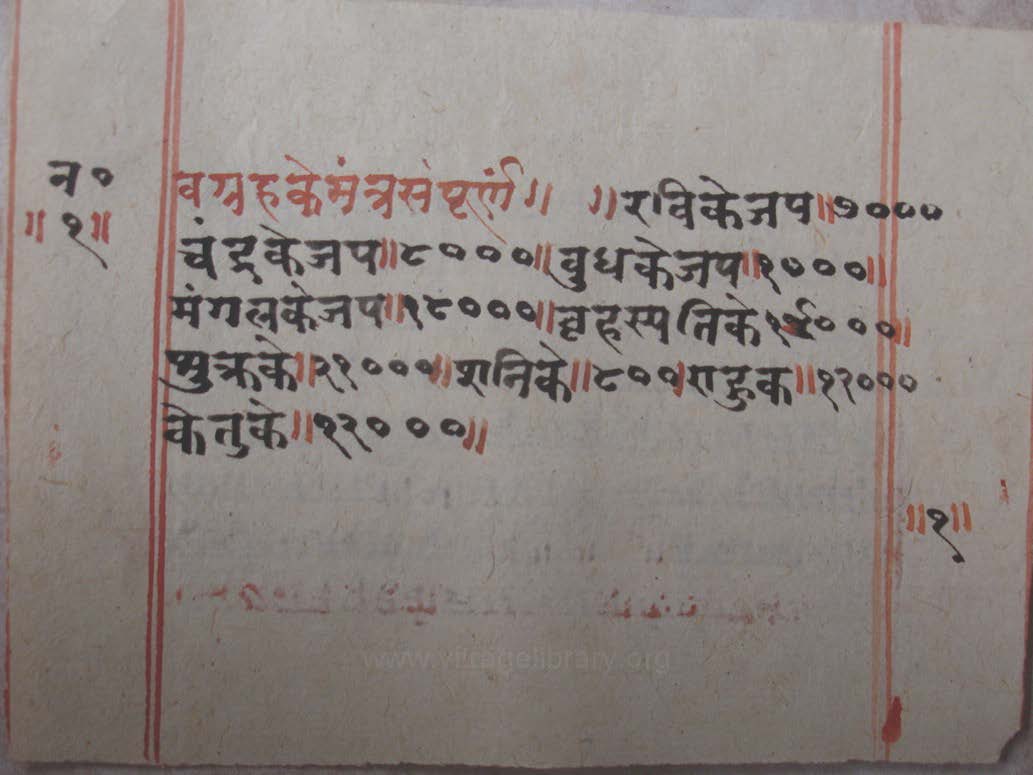 न॰
॥१॥
वग्रहकेमंत्रसंपूर्णं॥ ॥रविकेजप॥७०००
चंद्रकेजप॥८०००॥वुधकेजप॥१०००॥
मंगलकेजप॥१८०००॥वृहस्पतिके
शुक्रके॥२१०००॥शनिके॥८००॥राहुक॥१२०००
केतुके॥१२०००॥
॥१॥
www.vitragelibrary.org